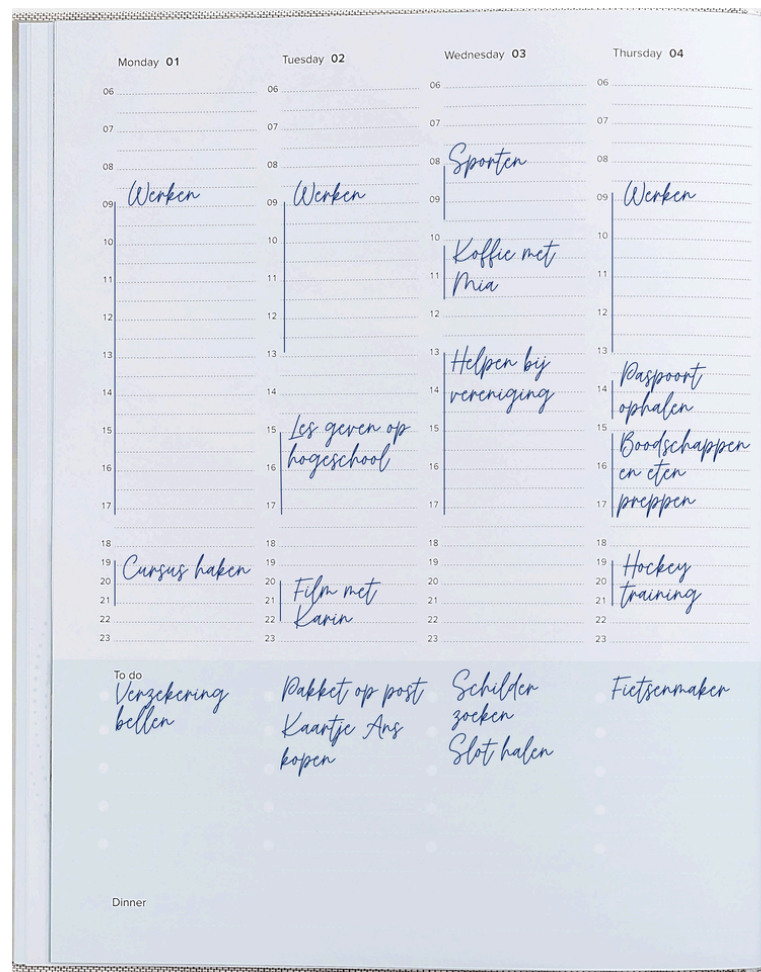 Monday 01
06
07
08
Werken
09
10
11
12
13
14
15
16
17
18
19
Cursus haken
20
21
22
23
To do
Verzekering
bellen
Dinner
Tuesday 02
06
07
08
Werken
09
10
11
12
13
14
15
Les geven op
hogeschool
16
17
18
19
20
Film met
21
Karin
22
23
Pakket op post
Kaartje Ans
kopen
Wednesday 03
06
07
08
Sporten
09
10
Koffie met
11
Mia
12
13
Helpen bij
14
vereniging
15
16
17
18
19
20
21
22
23
Schilder
zoeken
Slot halen
Thursday 04
06
07
08
09
Werken
10
11
12
13
Paspoort
14
ophalen
15
Boodschappen
16
en eten
17
preppen
18
19
Hockey
20
training
21
22
23
Fietsenmaker